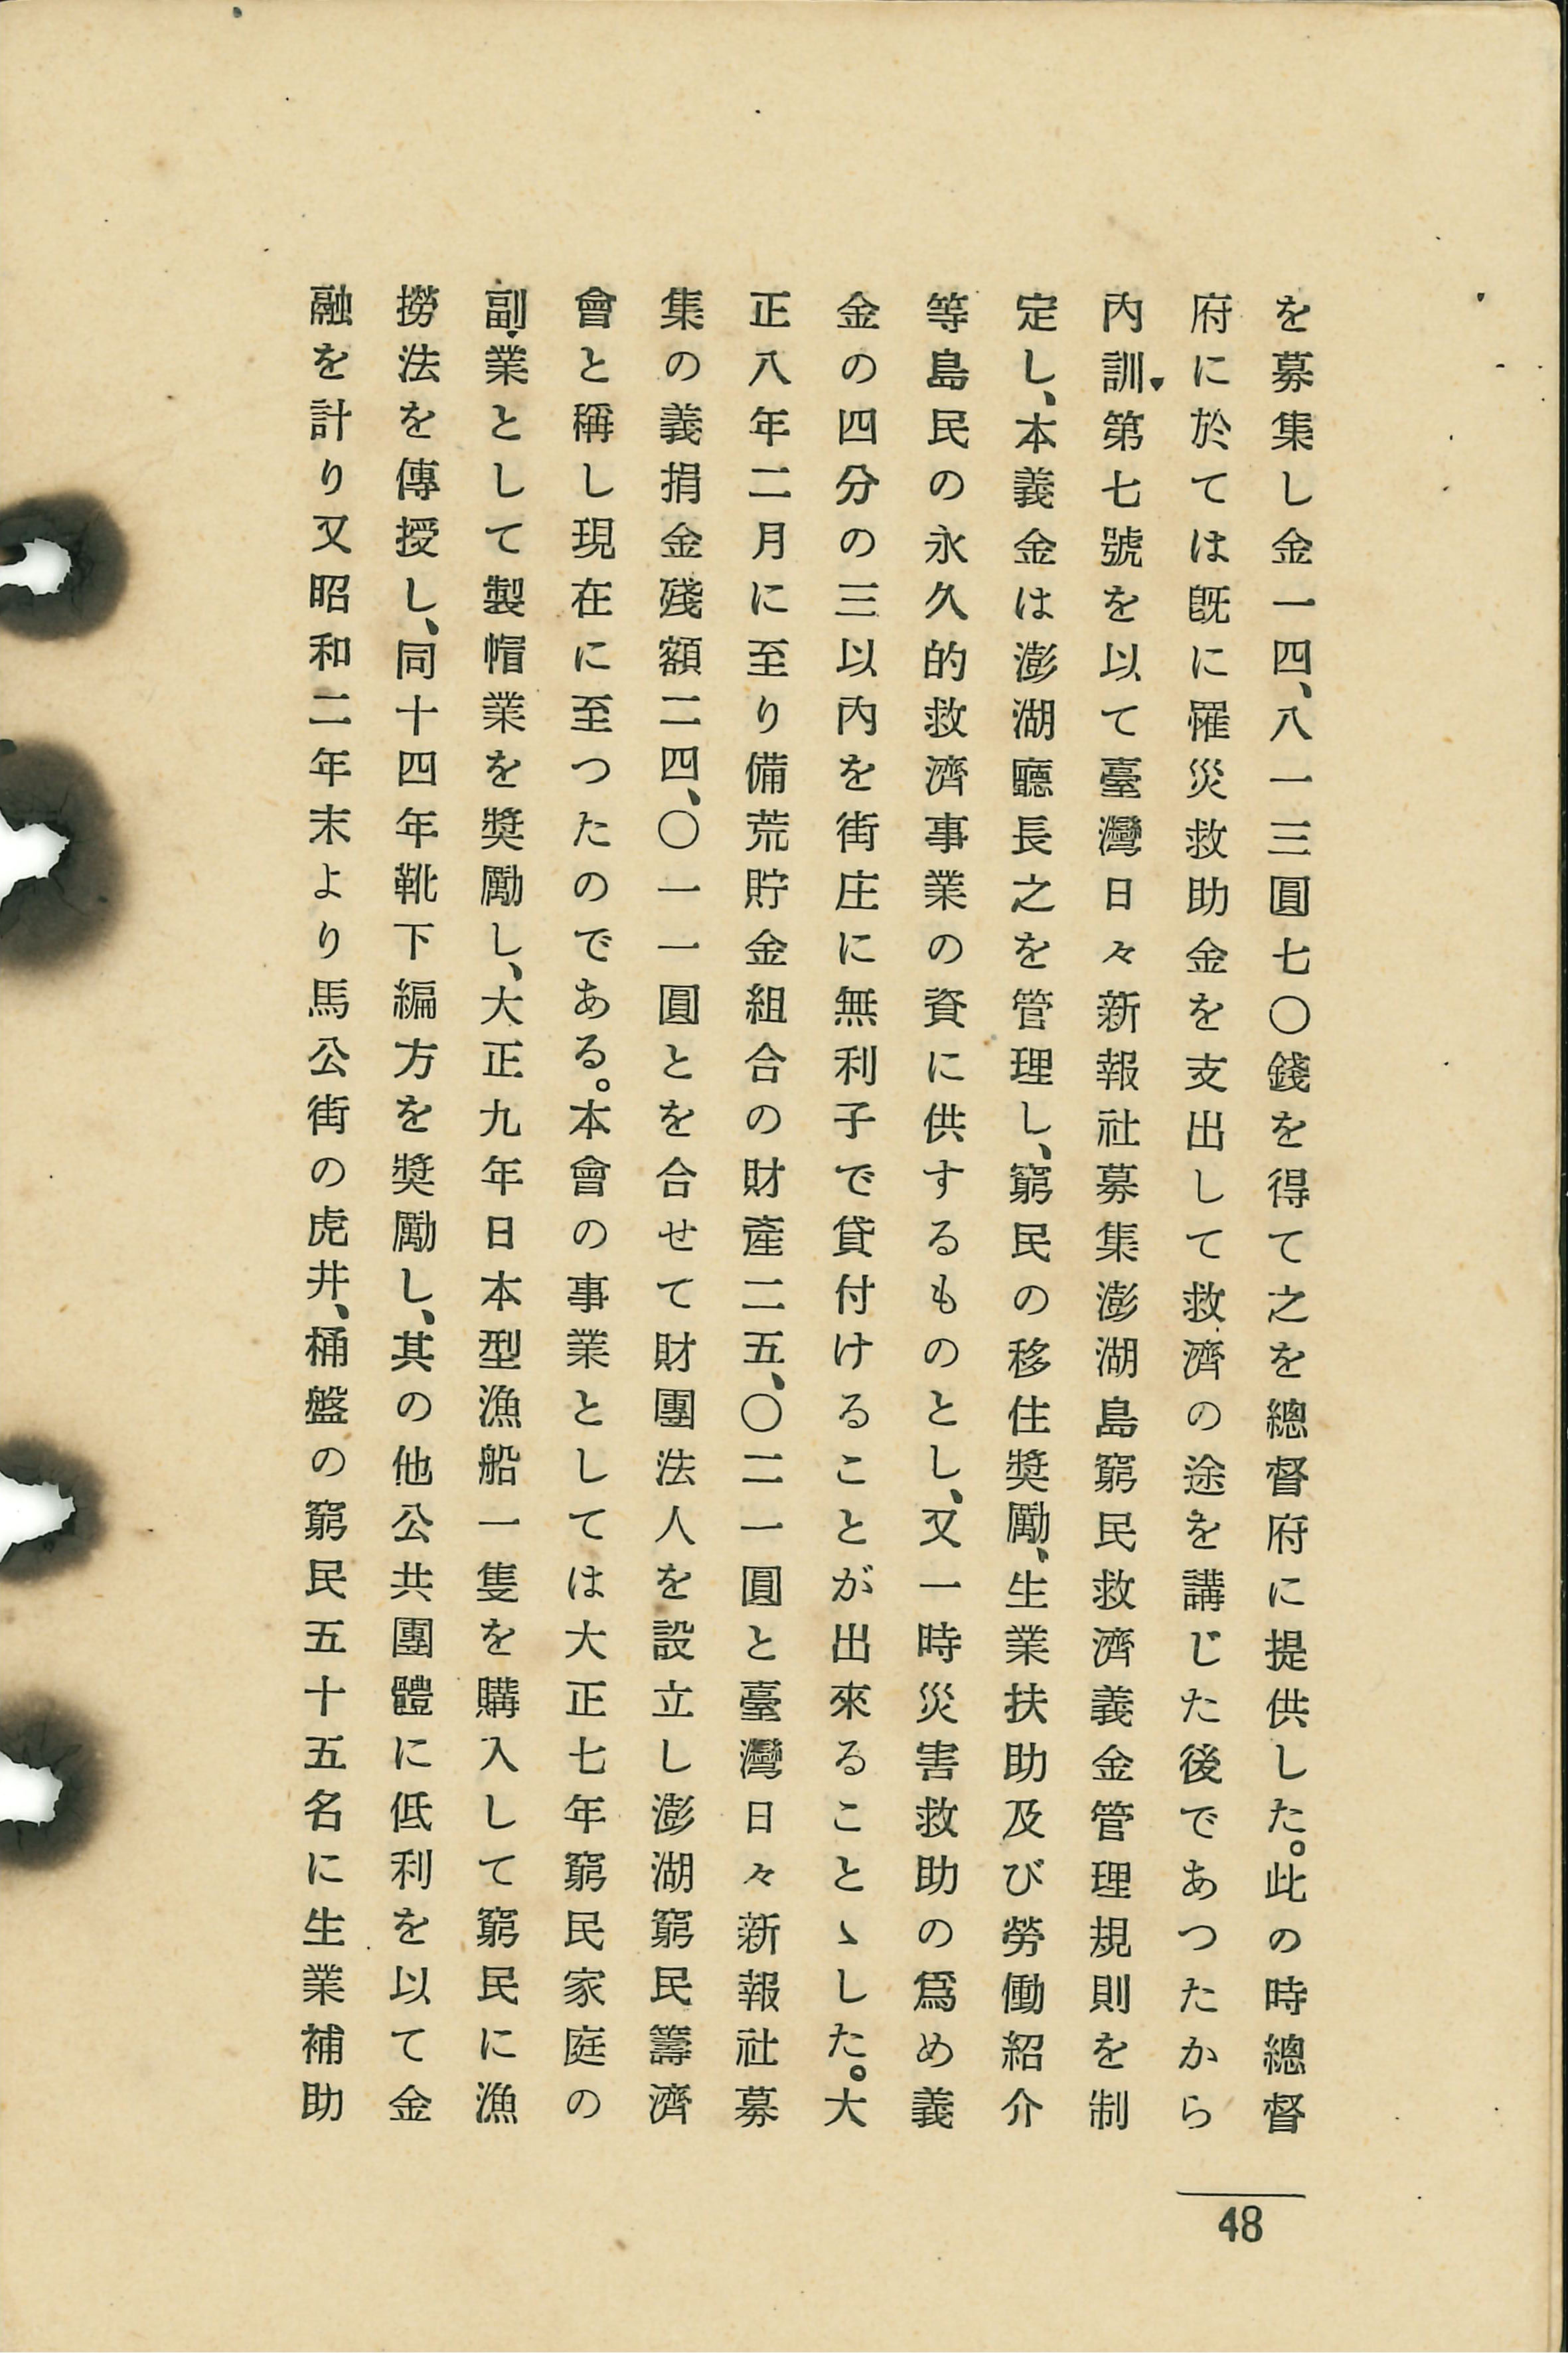 を募集し金一四、八一三圓七〇錢を得て之を總督府に提供した。此の時總督
府に於ては既に罹災救助金を支出して救濟の途を講じた後であつたから
內訓第七號を以て臺灣日々新報社募集澎湖島窮民救濟義金管理規則を制
定し、本義金は澎湖廳長之を管理し、窮民の移住獎勵、生業扶助及び勞働紹介
等島民の永久的救濟事業の資に供するものとし、又一時災害救助の爲め義
金の四分の三以內を街庄に無利子で貸付けることが出來ることゝした。大
正八年二月に至り備荒貯金組合の財產二五、〇二一圓と臺灣日々新報社募
集の義捐金殘額二四、〇一一圓とを合せて財團法人を設立し澎湖窮民籌濟
會と稱し現在に至つたのである。本會の事業としては大正七年窮民家庭の
副業として製帽業を獎勵し、大正九年日本型漁船一隻を購入して窮民に漁
撈法を傳授し、同十四年靴下編方を獎勵し、其の他公共團體に低利を以て金
融を計り又昭和二年末より馬公街の虎井、桶盤の窮民五十五名に生業補助
48